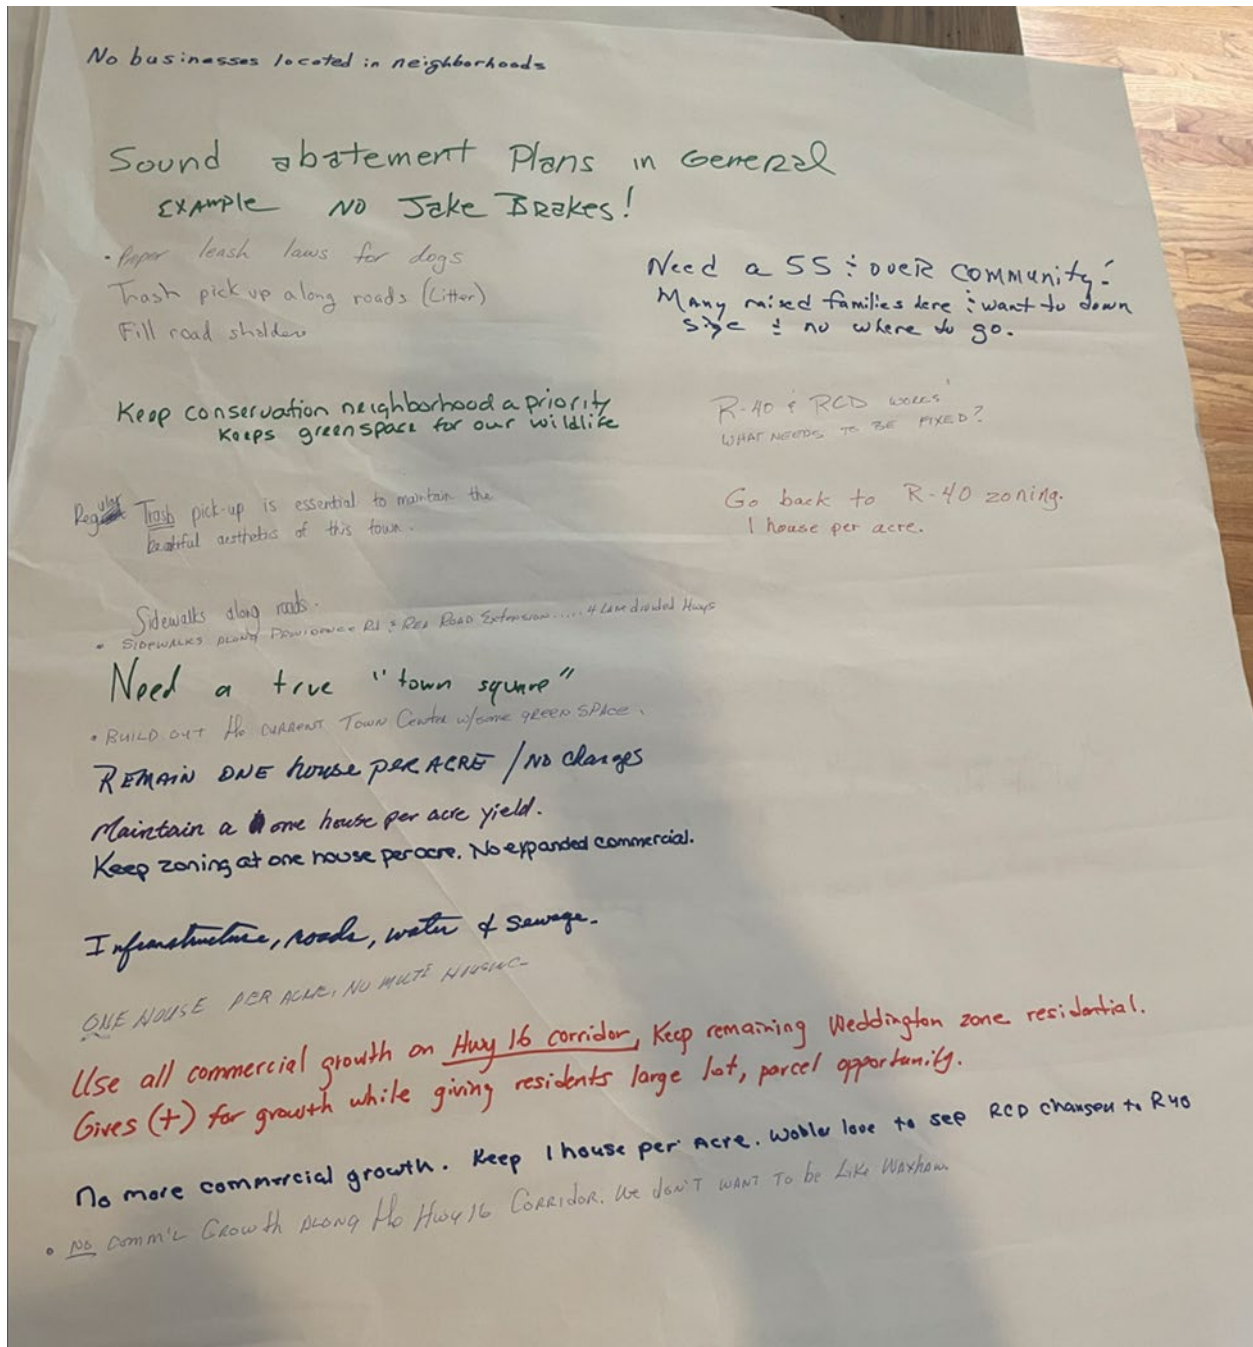 No businesses located in neighborhoods
Sound abatement Plans in General
EXAMPLE NO Jake Brakes!
• Proper leash laws for dogs
Trash pick up along roads (Litter)
Fill road sholders
Need a 55 & over community!
Many raised families here & want to down
size & no where to go.
Keep conservation neighborhood a priority
Keeps greenspace for our wildlife
R-40 & RCD works!
WHAT NEEDS TO BE FIXED?
Regular Trash pick-up is essential to maintain the
beatiful aesthetics of this town.
Go back to R-40 zoning.
1 house per acre.
Sidewalks along roads.
• SIDEWALKS ALONG PROVIDENCE Rd & REA ROAD Extension..... 4 Lane divided Hwys
Need a true "town square"
• BUILD OUT the CURRENT TOWN Center w/some GREEN SPACE.
REMAIN ONE house per ACRE / NO changes
Maintain a one house per acre yield.
Keep zoning at one house per acre. No expanded commercial.
Infrastructure, roads, water & sewage.
ONE HOUSE PER ACRE, NO MULTI HOUSING
Use all commercial growth on Hwy 16 corridor, Keep remaining Weddington zone residential.
Gives (+) for growth while giving residents large lot, parcel opportunity.
No more commercial growth. Keep 1 house per Acre. love to see RCD changed to R40
• NO COMM'L GROWth ALONG the Hwy 16 CORRIDOR. We don't WANT To be LIKE WAXhaw.